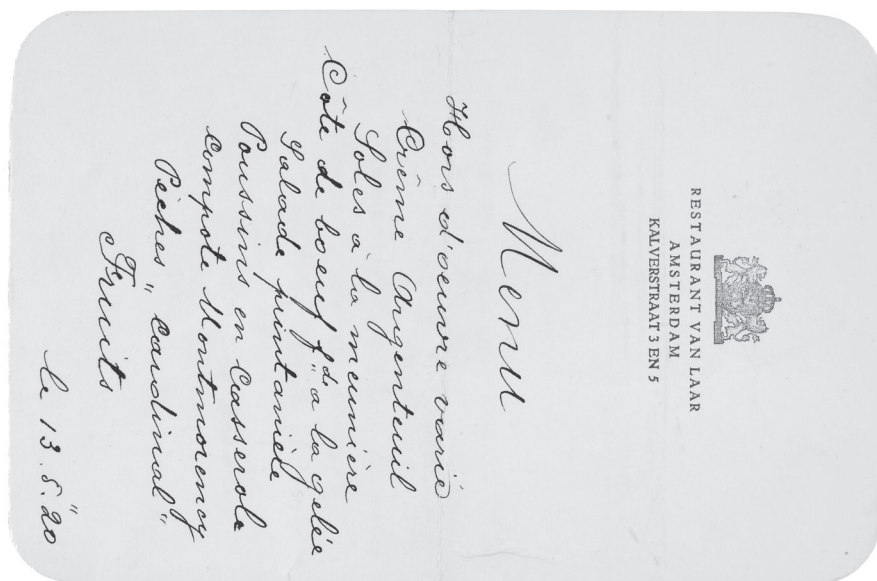 RESTAURANT VAN LAAR
AMSTERDAM
KALVERSTRAAT 3 EN 5
Menu
Hors d'oeuvre varié
Crême Argenteuil
Soles à la meunière
Côte de boeuf fde à la gelée
Salade printanière
Poussins en Casserole
Compote Montmorency
Pêches „Cardinal"
Fruits
le 13.5.20